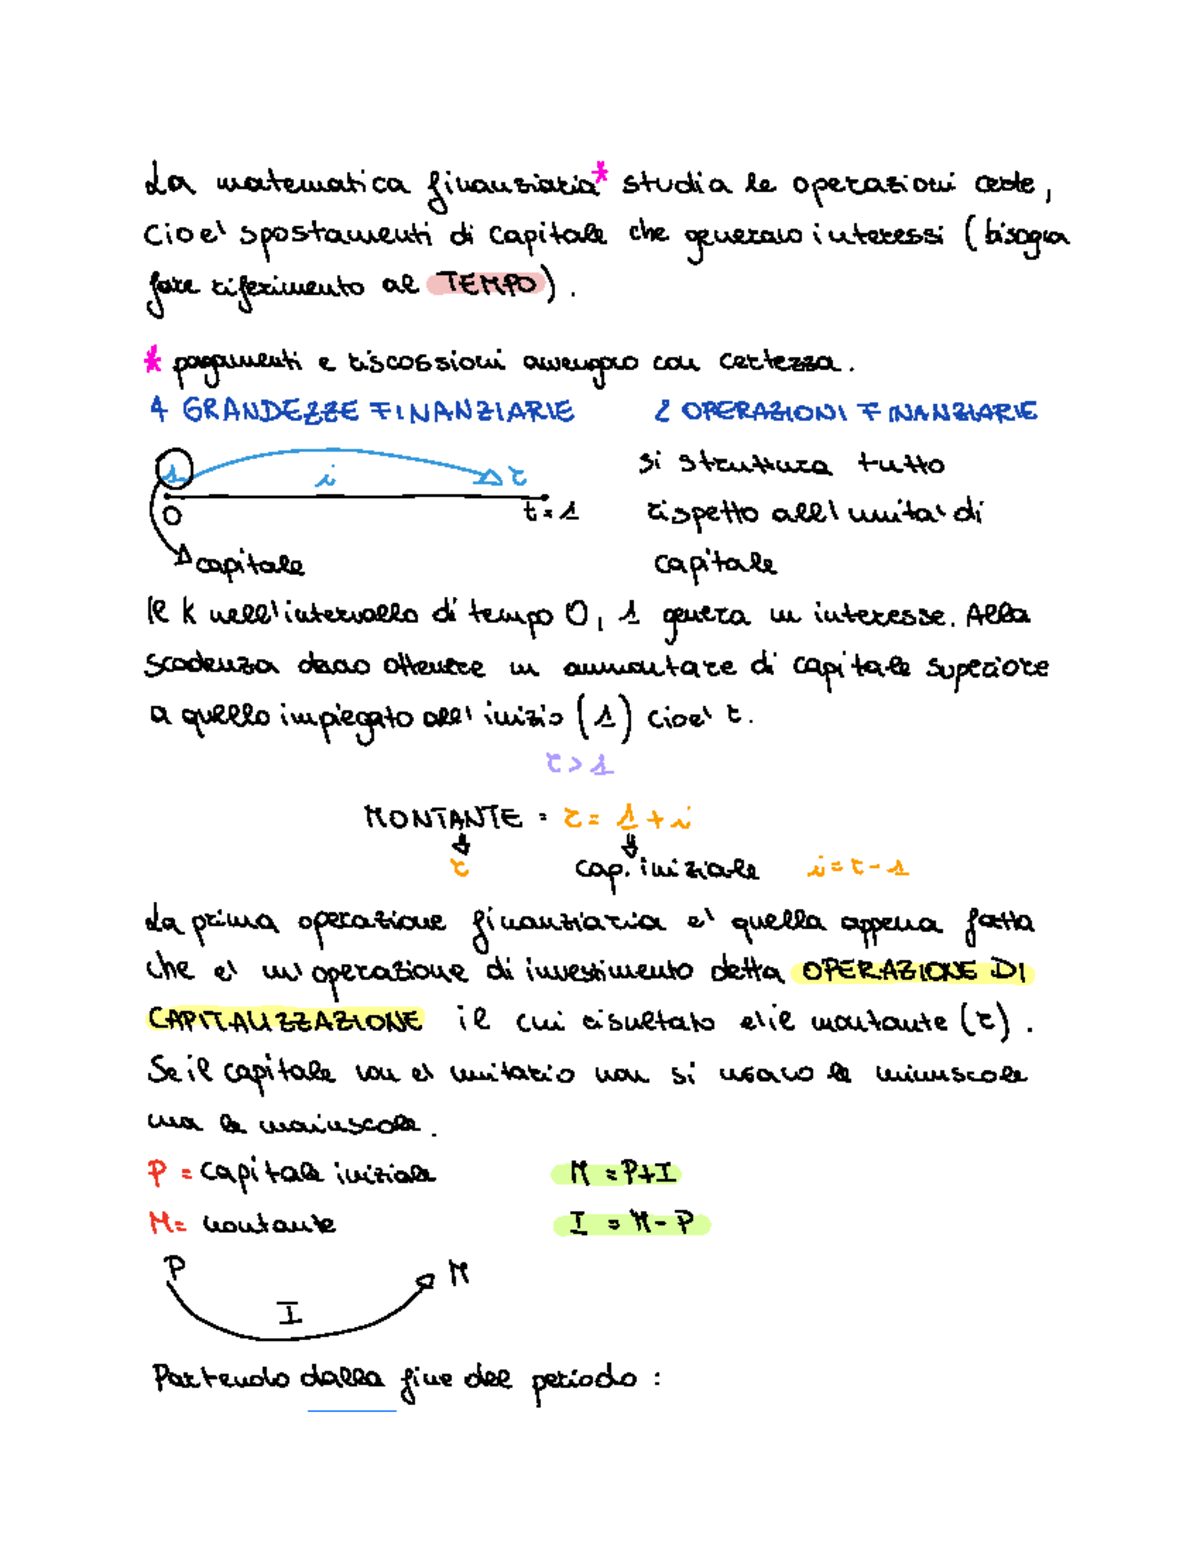 La matematica finanziaria* studia le operazioni certe,
cioe' spostamenti di capitale che generano interessi (bisogna
fare riferimento al TEMPO).
* pagamenti e riscossioni avvengono con certezza.
4 GRANDEZZE FINANZIARIE 2 OPERAZIONI FINANZIARIE
1 i r si struttura tutto
0 t = 1 rispetto all'unita' di
capitale capitale
Il K nell'intervallo di tempo 0, 1 genera un interesse. Alla
scadenza devo ottenere un ammontare di capitale superiore
a quello impiegato all'inizio (1) cioe' r.
r > 1
MONTANTE = r = 1 + i
r cap. iniziale i = r - 1
La prima operazione finanziaria e' quella appena fatta
che e' un'operazione di investimento detta OPERAZIONE DI
CAPITALIZZAZIONE il cui risultato e' il montante (r).
Se il capitale non e' unitario non si usano le minuscole
ma le maiuscole.
P = capitale iniziale M = P+I
M = montante I = M - P
P M
I
Partendo dalla fine del periodo :